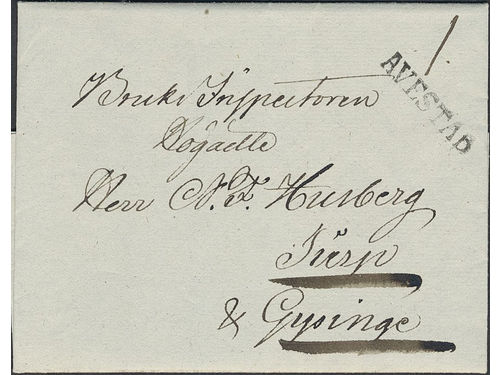 1.
AVESTAD
Bruks Inspectoren
Högädle
Herr N. F. Husberg
&
Gysinge